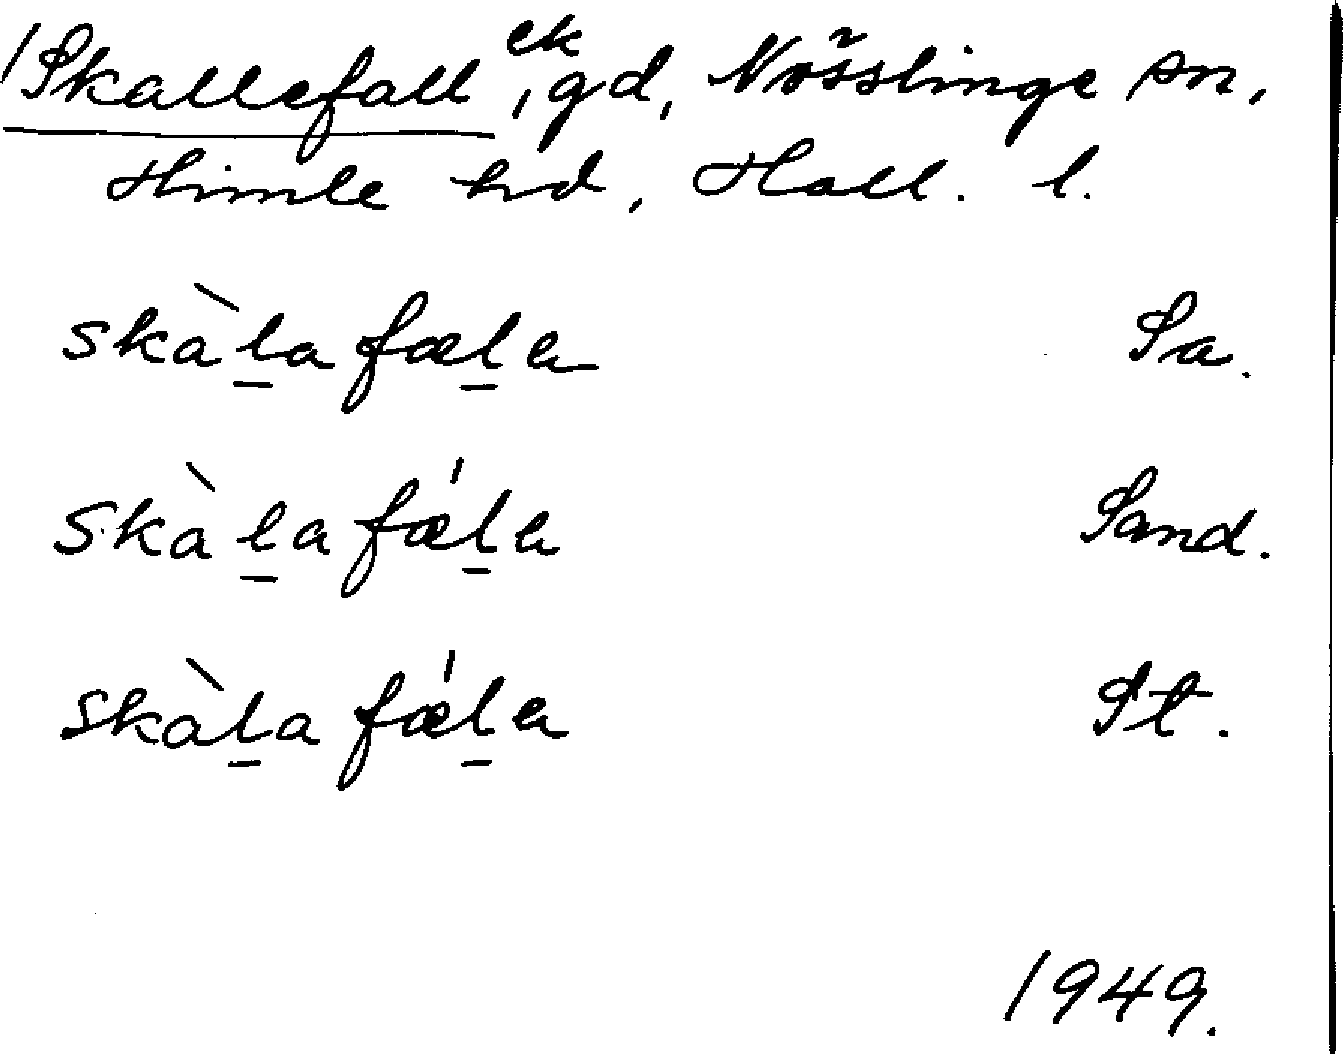 /Skallefall, ek gd, Nösslinge sn,
Himle hd, Hall. l.
skàl̠a fæl̠a Sa.
skàl̠a fǽl̠a Sand.
skàl̠a fǽl̠a St.
1949.